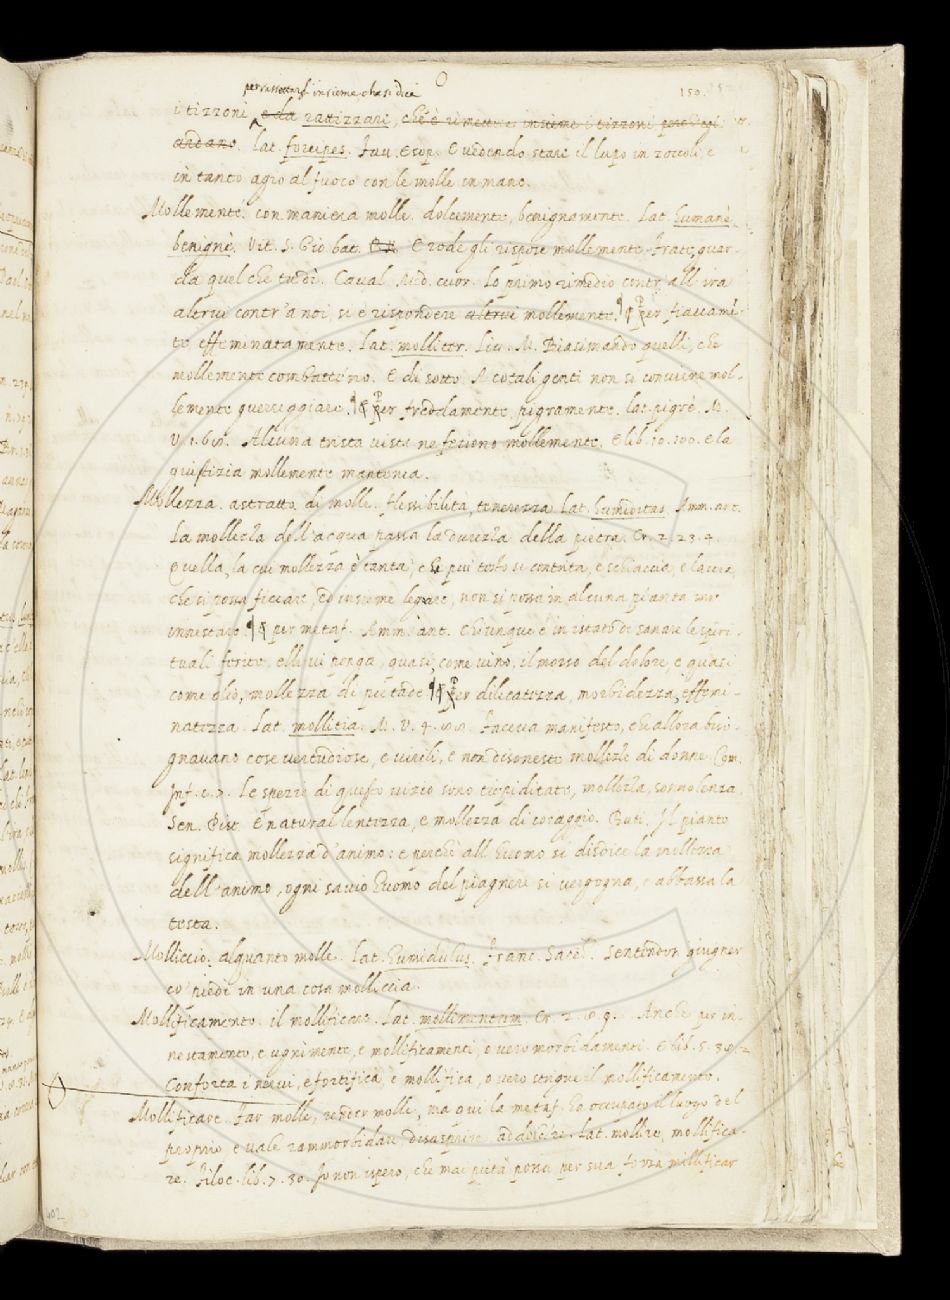 per rassettarsi insieme che si dice
150.
i tizzoni e da rattizzare, che è rimettere insieme i tizzoni perch'egi
ardano. Lat. forcipes. Fav. Esop. E vedendo stare il lupo in zoccoli, e
in tanto agio al fuoco con le molle in mano.
Mollemente. con maniera molle. dolcemente, benignamente. Lat. humanè
benignè. Vit. S. Gio bat. E rode gli rispose mollemente. Frate, guar-
da quel che tu dì. Caval. Med. cuor. Lo primo rimedio contr'all'ira
altrui contr'a noi, si è rispondere altrui mollemente. ¶ Per fiaccamē-
te effeminatamente. Lat. molliter. Liv. M. Biasimando quelli, che
mollemente combatteno. E di sotto. A cotali genti non si conviene mol-
lemente guerreggiare. ¶ Per freddamente, pigramente. lat. pigrè. M.
V. 1. 60. Alcuna trista vista ne feciono mollemente. E lib. 10. 100. E la
giustizia mollemente mantenea.
Mollezza. astratto di molle. flessibilità, tenerezza. Lat. humiditas. Amm. ant.
La mollezza dell'acqua passa la durezza della pietra. Cr. 2. 23. 4.
Quella, la cui mollezza è tanta, che più tosto si contrita, e schiaccia, e lacera,
che si possa ficcare, ed insieme legare, non si possa in alcuna pianta
innestare ¶ per metaf. Amm. ant. Chiunque è in istato di sanare le spiri-
tuali ferite, elli vi ponga, quasi come vino, il morso del dolore, e quasi
come olio, mollezza di pietade ¶ Per dilicatezza, morbidezza, effemi-
natezza. Lat. mollitia. M. V. 4. Faceva manifesto, ch'allora biso-
gnavano cose vertudiose, e virili, e non disoneste mollezze di donne. Com.
Inf. c. 7. Le spezie di questo vizio sono tiepiditate, mollezza, sonnolenza.
Sen. Pist. È natural lentezza, e mollezza di coraggio. Buti. Il pianto
significa mollezza d'animo: e perchè all'huomo si disdice la mollezza
dell'animo, ogni savio huomo del piagnere si vergogna, e abbassa la
testa.
Molliccio. alquanto molle. Lat. humidulus. Franc. Sacch. Sentendosi giugner
co' piedi in una cosa molliccia.
Mollificamento. il mollificare. Lat. mollimentum. Cr. 2. 8. 9. Anche per in-
nestamento, e ugnimento, e mollificamenti, o vero morbidamenti. E lib. 5. 38. 2
Conforta i nervi, e fortifica, e mollifica, o vero strigne il mollificamento.
Mollificare. Far molle, render molle, ma qui la metaf. ha occupato il luogo del
proprio, e vale rammorbidare disasprire, addolcire. Lat. mollire, mollifica-
re. Filoc. lib. 7. 30. Io non ispero, che mai pietà possa per sua forza mollificar
402